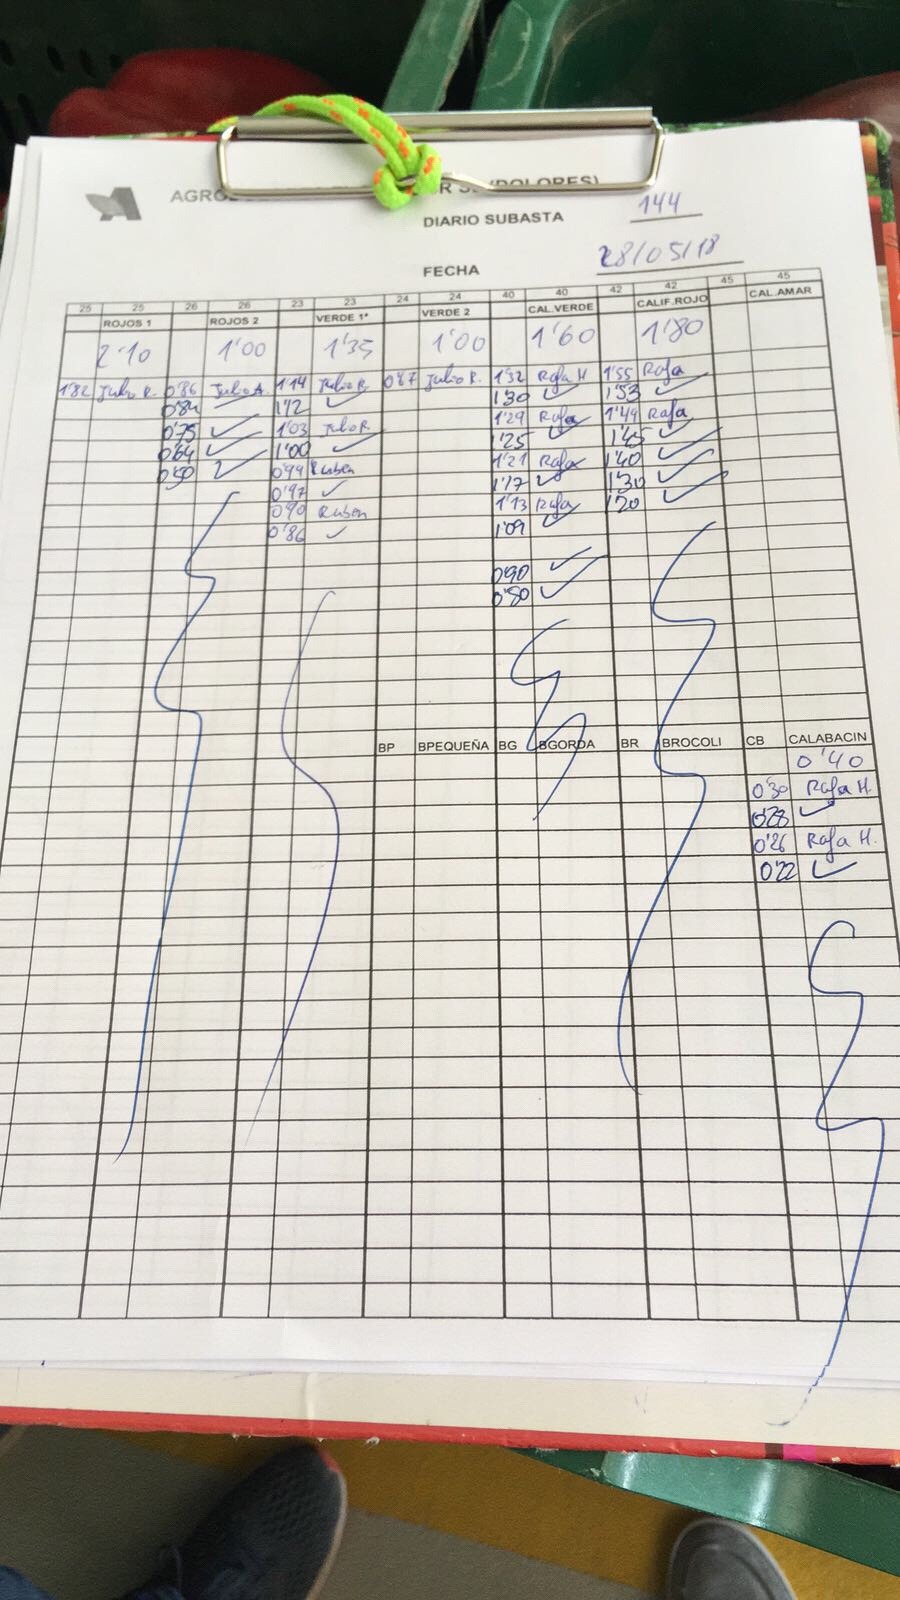 DIARIO SUBASTA 144
FECHA 28/05/18
25 25 26 26 23 23 24 24 40 40 42 42 45 45
ROJOS 1 ROJOS 2 VERDE 1ª VERDE 2 CAL.VERDE CALIF.ROJO CAL.AMAR
2'10 1'00 1'35 1'00 1'60 1'80
1'82 Julio R. 0'86 Julio A. 1'14 Julio R. 0'87 Julio R. 1'32 Rafa H 1'55 Rafa
0'84 1'12 1'30 1'53
0'75 1'03 Julio R 1'29 Rafa 1'49 Rafa
0'64 1'00 1'25 1'45
0'50 0'99 Ruben 1'21 Rafa 1'40
0'97 1'17 1'30
0'90 Ruben 1'13 Rafa 1'20
0'86 1'09
0'90
0'80
BP BPEQUEÑA BG BGORDA BR BROCOLI CB CALABACIN
0'40
0'30 Rafa H.
0'28
0'26 Rafa H.
0'22